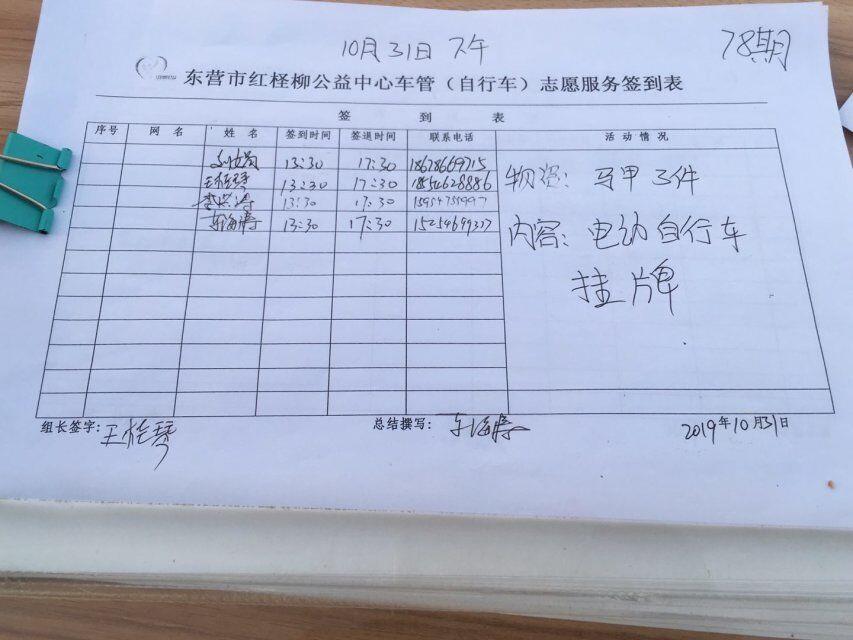 10月31日 下午
78期
东营市红柽柳公益中心车管（自行车）志愿服务签到表
签 到 表
序号 网 名 姓 名 签到时间 签退时间 联系电话 活 动 情 况
13:30 17:30 18678669715
王桂琴 13:30 17:30 18546628886
李洪涛 13:30 17:30
东海涛 13:30 17:30 15254699327
物资: 马甲3件
内容: 电动自行车
挂牌
组长签字: 王桂琴 总结撰写: 东海涛 2019年10月31日